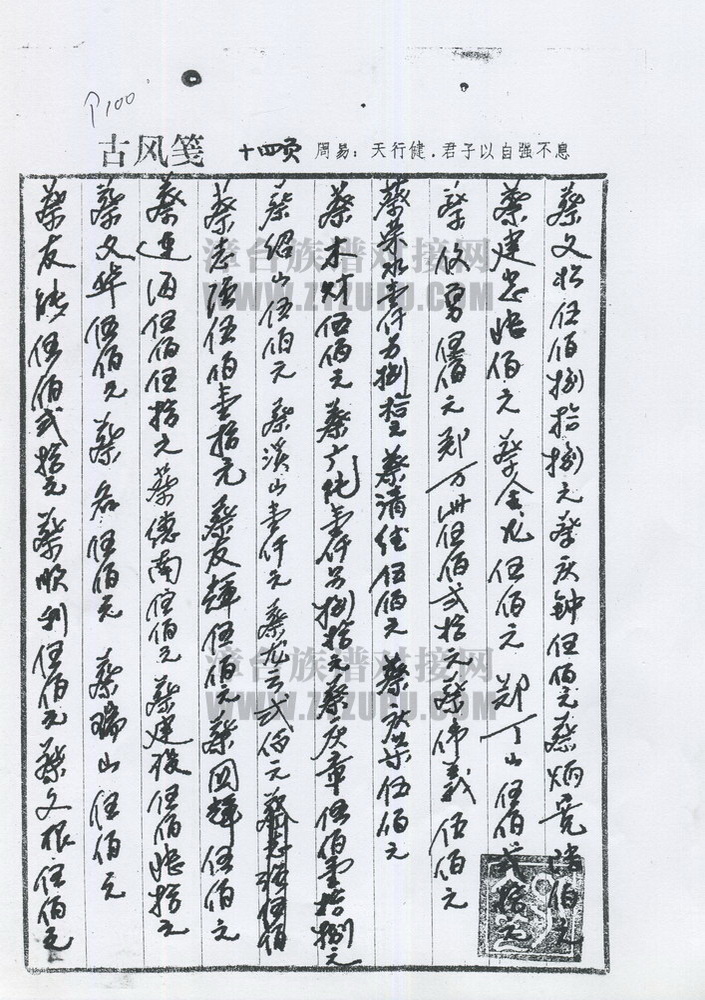 P100
古风笺 十四页 周易：天行健．君子以自强不息
蔡文 伍佰捌拾捌元 蔡庆钟伍佰元 蔡炳亮陆佰元
蔡建忠 佰元 蔡金九伍佰元 郑丁山伍佰弍拾元
蔡 勇伍佰元 郑万州伍佰弍拾元 蔡伟義伍佰元
蔡荣水壹仟 捌拾元 蔡清 伍佰元 蔡庆荣伍佰元
蔡木财伍佰元 蔡广 壹仟 捌拾元 蔡庆章伍佰壹拾捌元
蔡绍山伍佰元 蔡溪山壹仟元 蔡龙云弍佰元 蔡志强伍佰
蔡志强伍佰壹拾元 蔡友辉伍佰元 蔡国辉伍佰元
蔡进酒伍佰伍拾元 蔡德南伍佰元 蔡建 伍佰 拾元
蔡文华伍佰元 蔡 伍佰元 蔡瑞山伍佰元
蔡友 伍佰弍拾元 蔡顺利伍佰元 蔡文根伍佰元
漳台族谱对接网
WWW.ZTZUPU.COM
漳台族谱对接网
WWW.ZTZUPU.COM